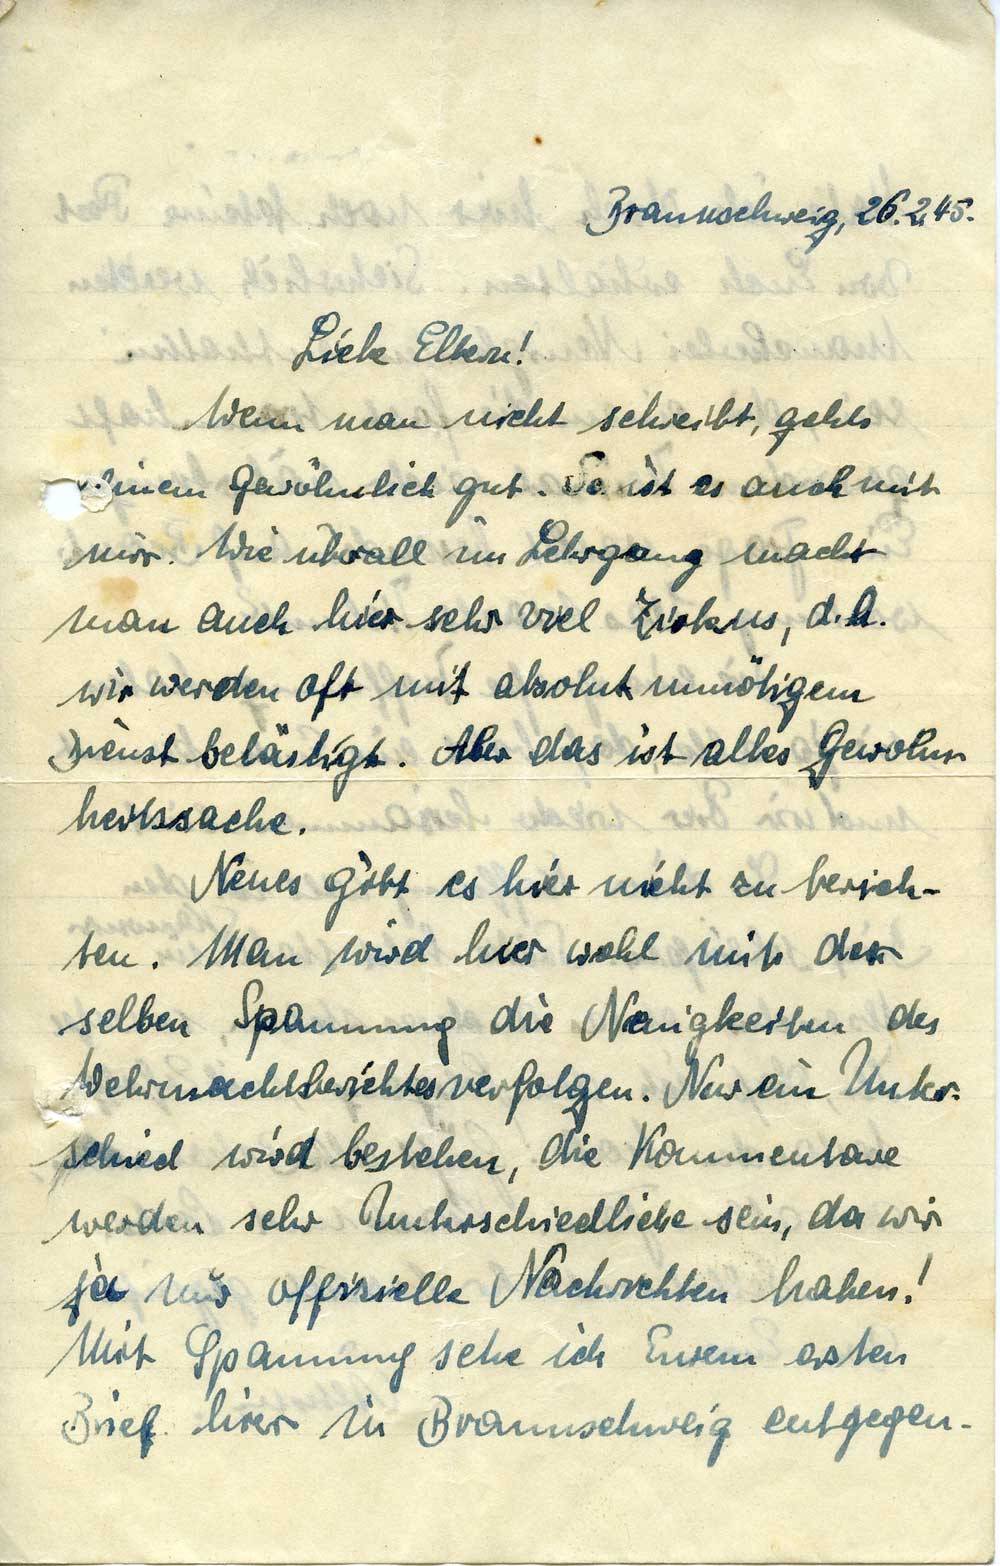 Braunschweig, 26.2.45.
Liebe Eltern!
Wenn man nicht schreibt, gehts
einem gewöhnlich gut. So ist es auch mit
mir. Wie überall im Lehrgang macht
man auch hier sehr viel Zirkus, d.h.
wir werden oft mit absolut unnötigem
Dienst belästigt. Aber das ist alles Gewohn
heitssache.
Neues gibt es hier nicht zu berich-
ten. Man wird hier wohl mit der
selben Spannung die Neuigkeiten des
Wehrmachtsberichtes verfolgen. Nur ein Unter-
schied wird bestehen, die Kommentare
werden sehr Unterschiedliche sein, da wir
ja nur offizielle Nachrichten haben!
Mit Spannung sehe ich Eurem ersten
Brief hier in Braunschweig entgegen-